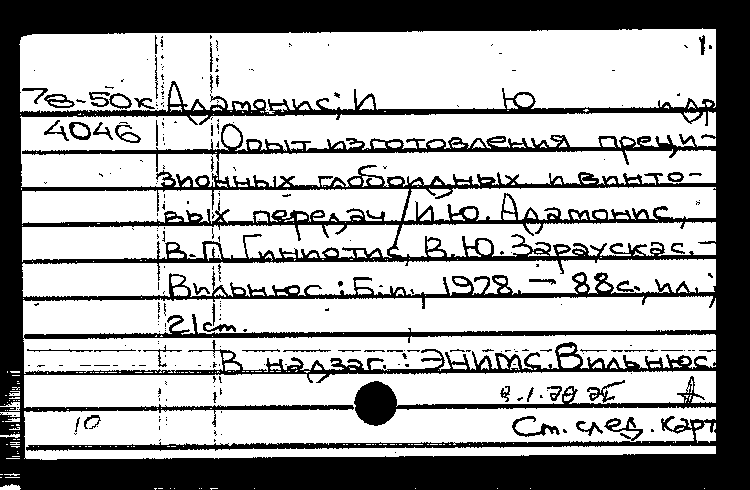 1.
78-50к Адатонис, И Ю и др
4046 Опыт изготовления преци-
зионных глобоидных и винто-
вых передач / И.Ю. Адатонис,
В.П. Гиниотис, В.Ю. Зараускас. -
Вильнюс : Б.и., 1978. — 88с., ил. ;
21 см.
В надзаг. : ЭНИМС. Вильнюс.
10 См. след. карт